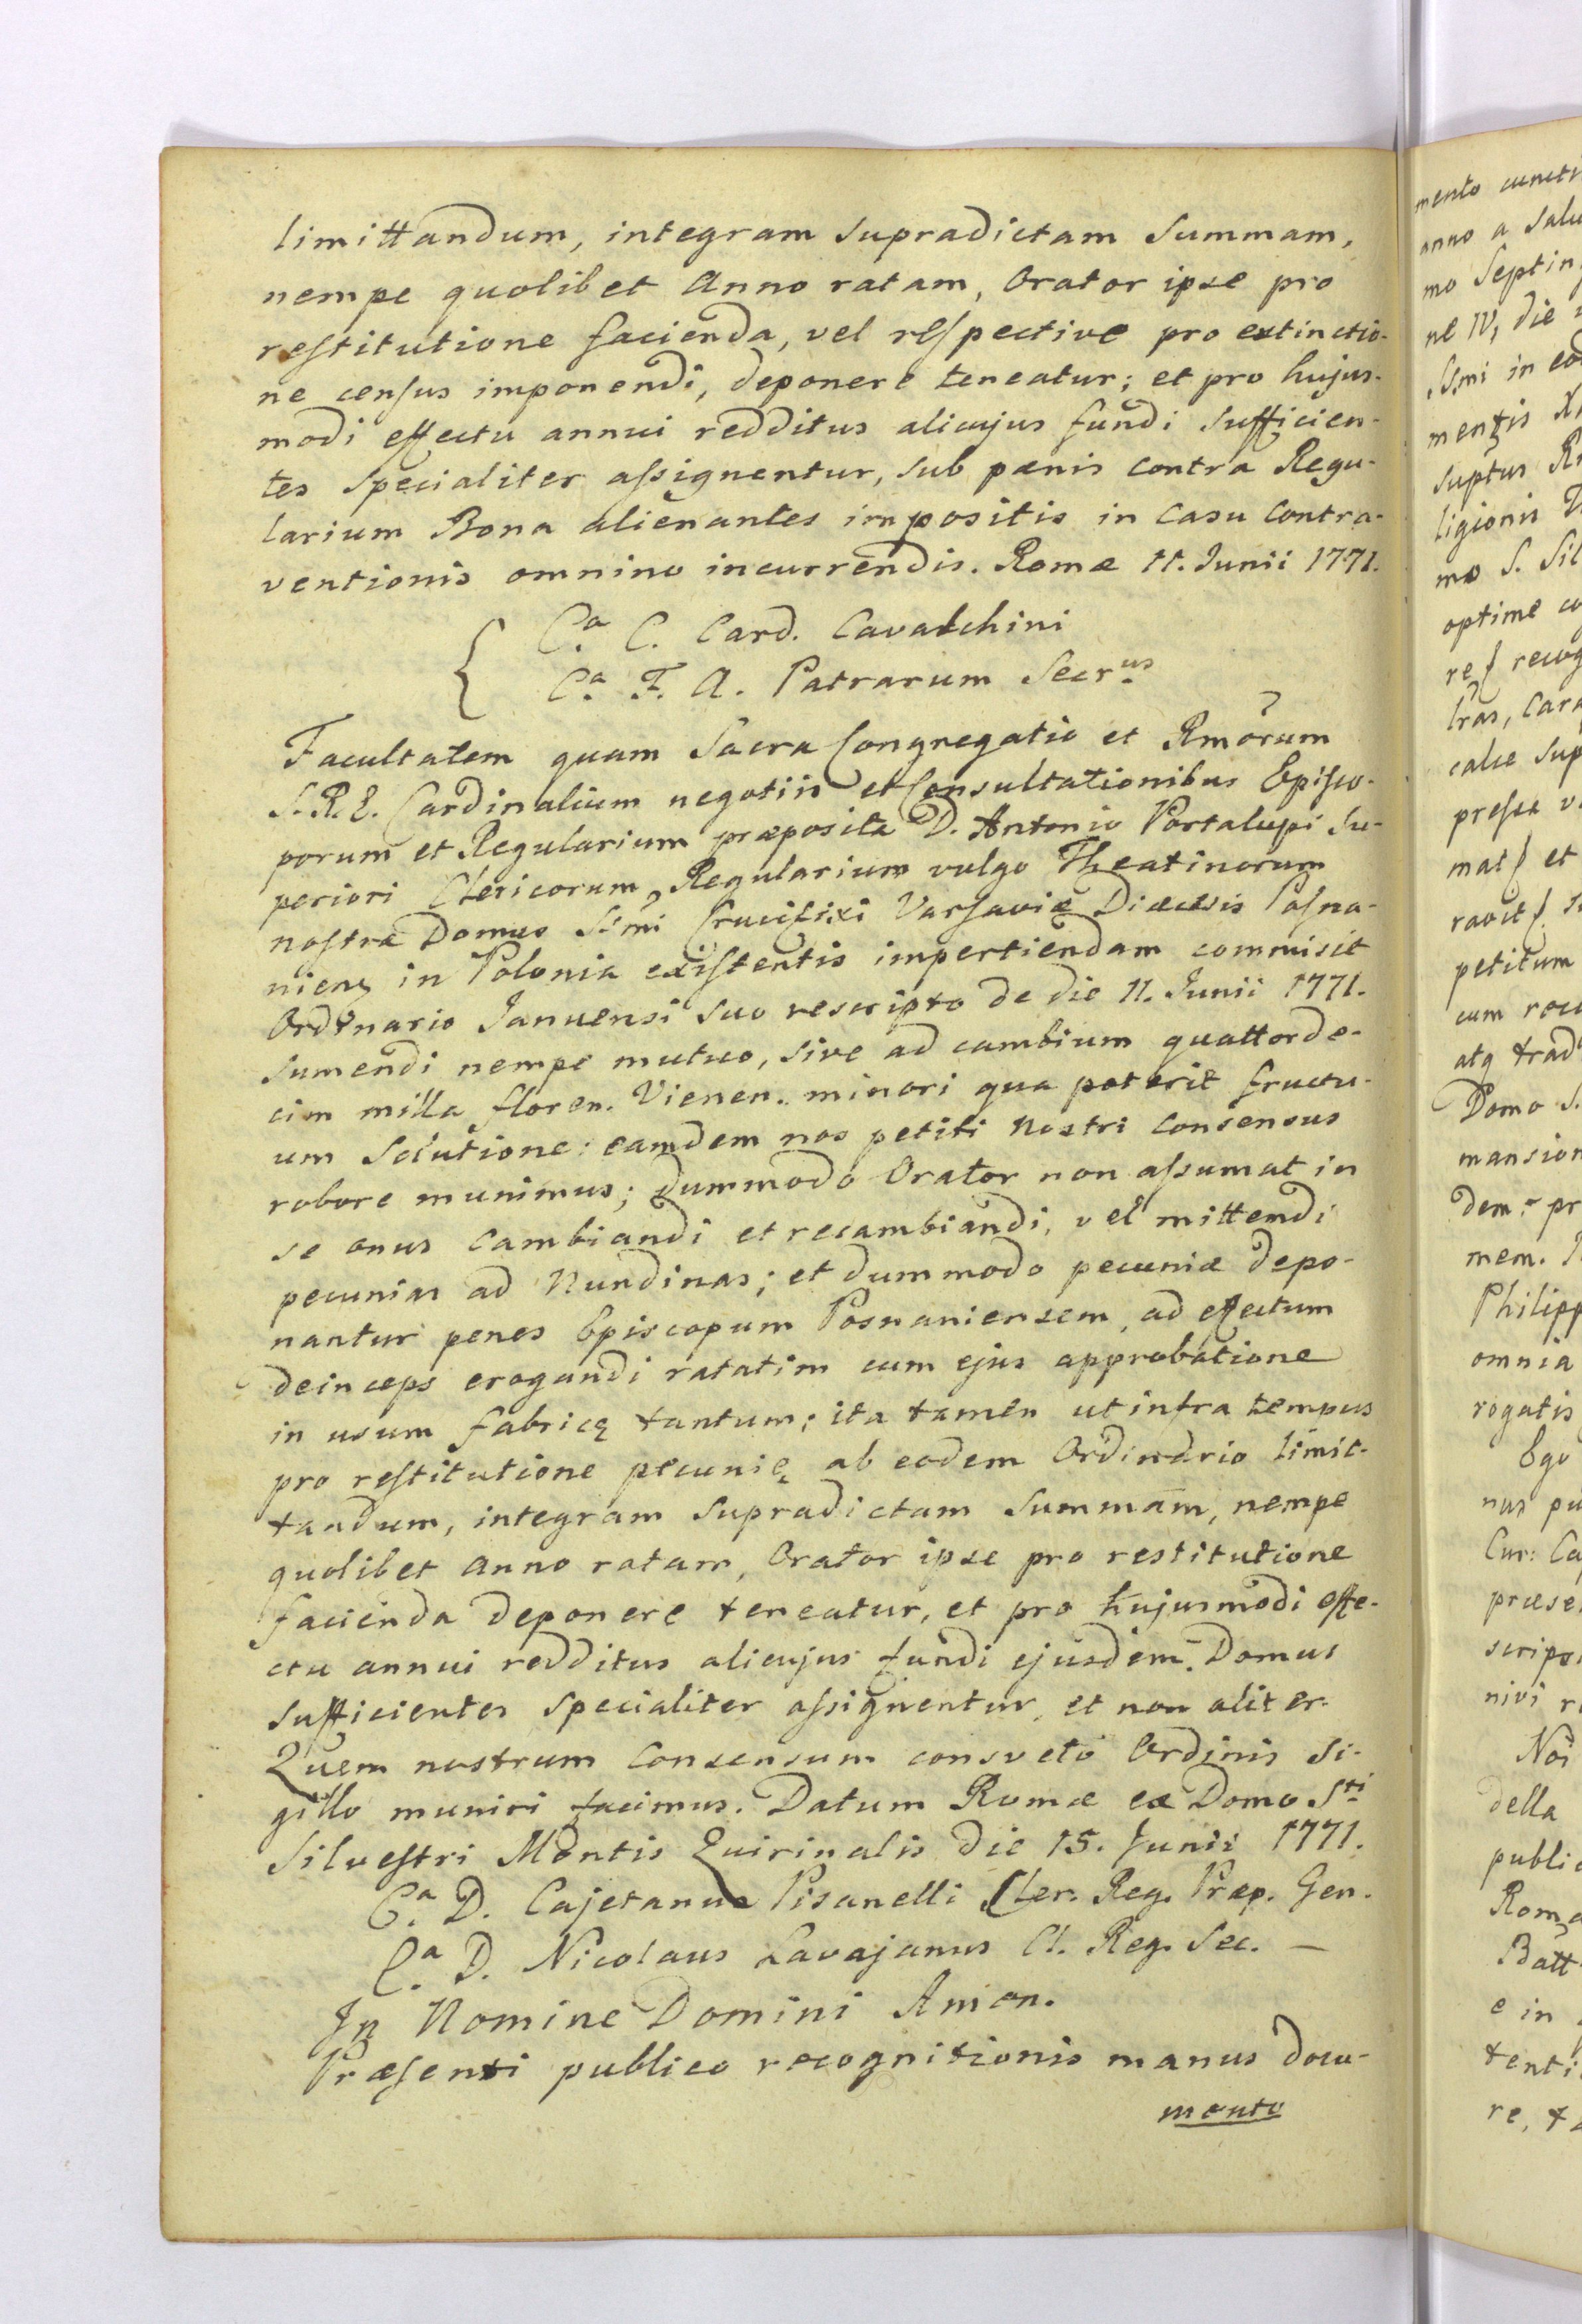 limittandum, integram supradictam summam,
nempe quolibet Anno ratam, Orator ipse pro
restitutione facienda, vel respective pro extinctio-
ne census imponendi, deponere teneatur; et pro hujus-
modi effectu annui redditus alicujus fundi sufficien-
tes specialiter assignentur, sub pænis contra Regu-
larium Bona alienantes impositis in casu contra-
ventionis omnino incurrendis. Romæ 11. Junii 1771.
Ca. C. Card. Cavalchini
Ca. F. A. Patrarum Secrus
Facultatem quam Sacra Congregatio et Rmorum
S. R. E. Cardinalium negotiis et Consultationibus Episco-
porum et Regularium præposita D. Antonio Portalupi Su-
periori Clericorum Regularium vulgo Theatinorum
nostræ Domus Ssmi Crucifixi Varsaviæ Diæcesis Posna-
niens in Polonia existentis impertiendam commisit
Ordinario Januensi suo rescripto de die 11. Junii 1771.
sumendi nempe mutuo, sive ad cambium quattorde-
cim milla floren. Vienen. minori qua poterit fructu-
um solutione: eamdem nos petiti nostri consensus
robore munimus; dummodo Orator non assumat in
se onus cambiandi et recambiandi, vel mittendi
pecunias ad Nundinas; et dummodo pecuniæ depo-
nantur penes Episcopum Posnaniensem, ad effectum
deinceps erogandi ratatim cum ejus approbatione
in usum fabricę tantum; ita tamen ut infra tempus
pro restitutione pecunię ab eodem Ordinario limit-
tandum, integram supradictam summam, nempe
quolibet anno ratam, Orator ipse pro restitutione
facienda deponere teneatur, et pro hujusmodi effe-
ctu annui redditus alicujus fundi ejusdem Domus
sufficientes specialiter assignentur, et non aliter.
Quem nostrum consensum consveto Ordinis si-
gillo muniri facimus. Datum Romæ ex Domo Sti
Silvestri Montis Quirinalis die 15. Junii 1771.
Ca. D. Cajetanus Pisanelli Cler. Reg. Præp. Gen.
Ca. D. Nicolaus Lavajanus Cl. Reg. Sec. —
In Nomine Domini Amen.
Præsenti publico recognitionis manus docu-
mento
mento cuncti
anno a salu
mo septin
ne IV, die
Ssmi in eod
mentis
suptus
ligionis
mo S. Sil
optime co
re recog
lras, cara
calce sup
presse
mat et
ravit
petitum
cum
atq trad
Domo S.
mansion
dem pr
mem.
Philipp
omnia
rogatis
Ego
nus pu
Cur: Ca
præse
scripsi
nivi r
Noi
della
public
Roma
Batt
e in
tenti
re,